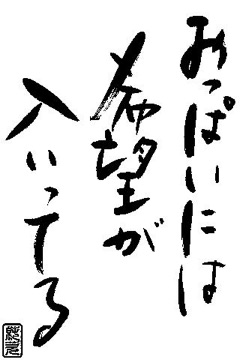 おっぱいには
希望が
入いってる